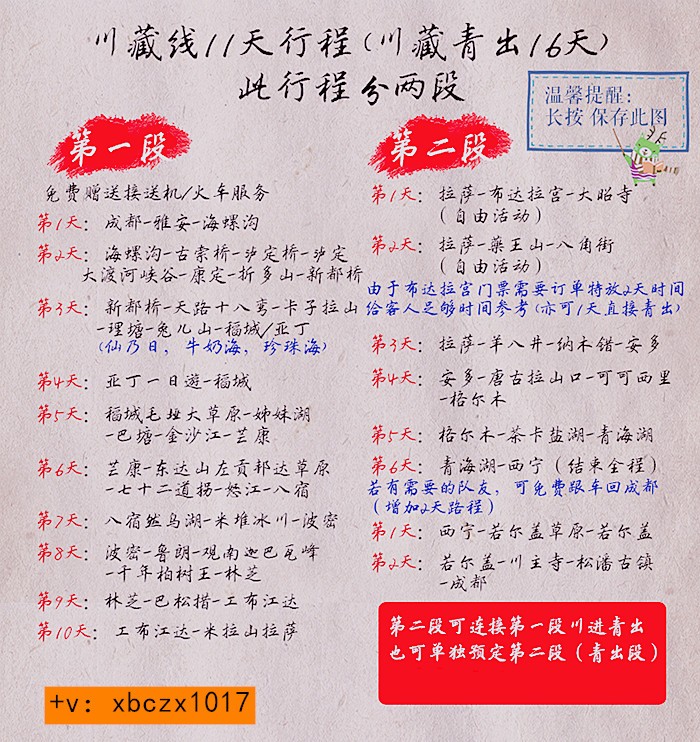 川藏线11天行程(川藏青出16天)
此行程分两段
温馨提醒:
长按 保存此图
第一段
免费赠送接送机/火车服务
第1天: 成都-雅安-海螺沟
第2天: 海螺沟-古索桥-泸定桥-泸定
大渡河峡谷-康定-折多山-新都桥
第3天: 新都桥-天路十八弯-卡子拉山
-理塘-兔儿山-稻城/亚丁
(仙乃日, 牛奶海, 珍珠海)
第4天: 亚丁一日遊-稻城
第5天: 稻城毛垭大草原-姊妹湖
-巴塘-金沙江-芒康
第6天: 芒康-东达山左贡邦达草原
-七十二道拐-怒江-八宿
第7天: 八宿然乌湖-米堆冰川-波密
第8天: 波密-鲁朗-观南迦巴瓦峰
-千年柏树王-林芝
第9天: 林芝-巴松措-工布江达
第10天: 工布江达-米拉山拉萨
+v: xbczx1017
第二段
第1天: 拉萨-布达拉宫-大昭寺
(自由活动)
第2天: 拉萨-藥王山-八角街
(自由活动)
由于布达拉宫门票需要订单特放2天时间
给客人足够时间参考(亦可1天直接青出)
第3天: 拉萨-羊八井-纳木错-安多
第4天: 安多-唐古拉山口-可可西里
-格尔木
第5天: 格尔木-茶卡盐湖-青海湖
第6天: 青海湖-西宁(结束全程)
若有需要的队友, 可免费跟车回成都
(增加2天路程)
第1天: 西宁-若尔盖草原-若尔盖
第2天: 若尔盖-川主寺-松潘古镇
-成都
第二段可连接第一段川进青出
也可单独预定第二段(青出段)